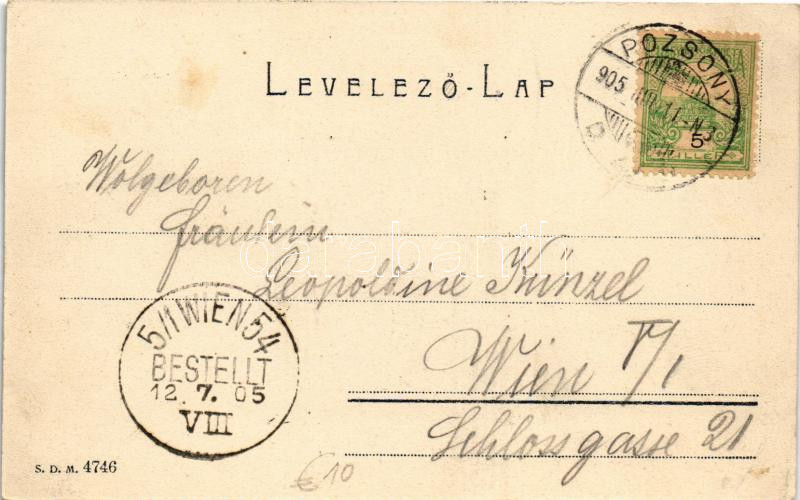 LEVELEZŐ-LAP
POZSONY
905
11-N3
5
FILLER
Wolgeboren
Fräulein
Leopoldine Künzel
Wien V/1
Schlossgasse 21
5/1 WIEN 54
BESTELLT
12. 7. 05
VIII
S. D. M. 4746
€10
darabanth